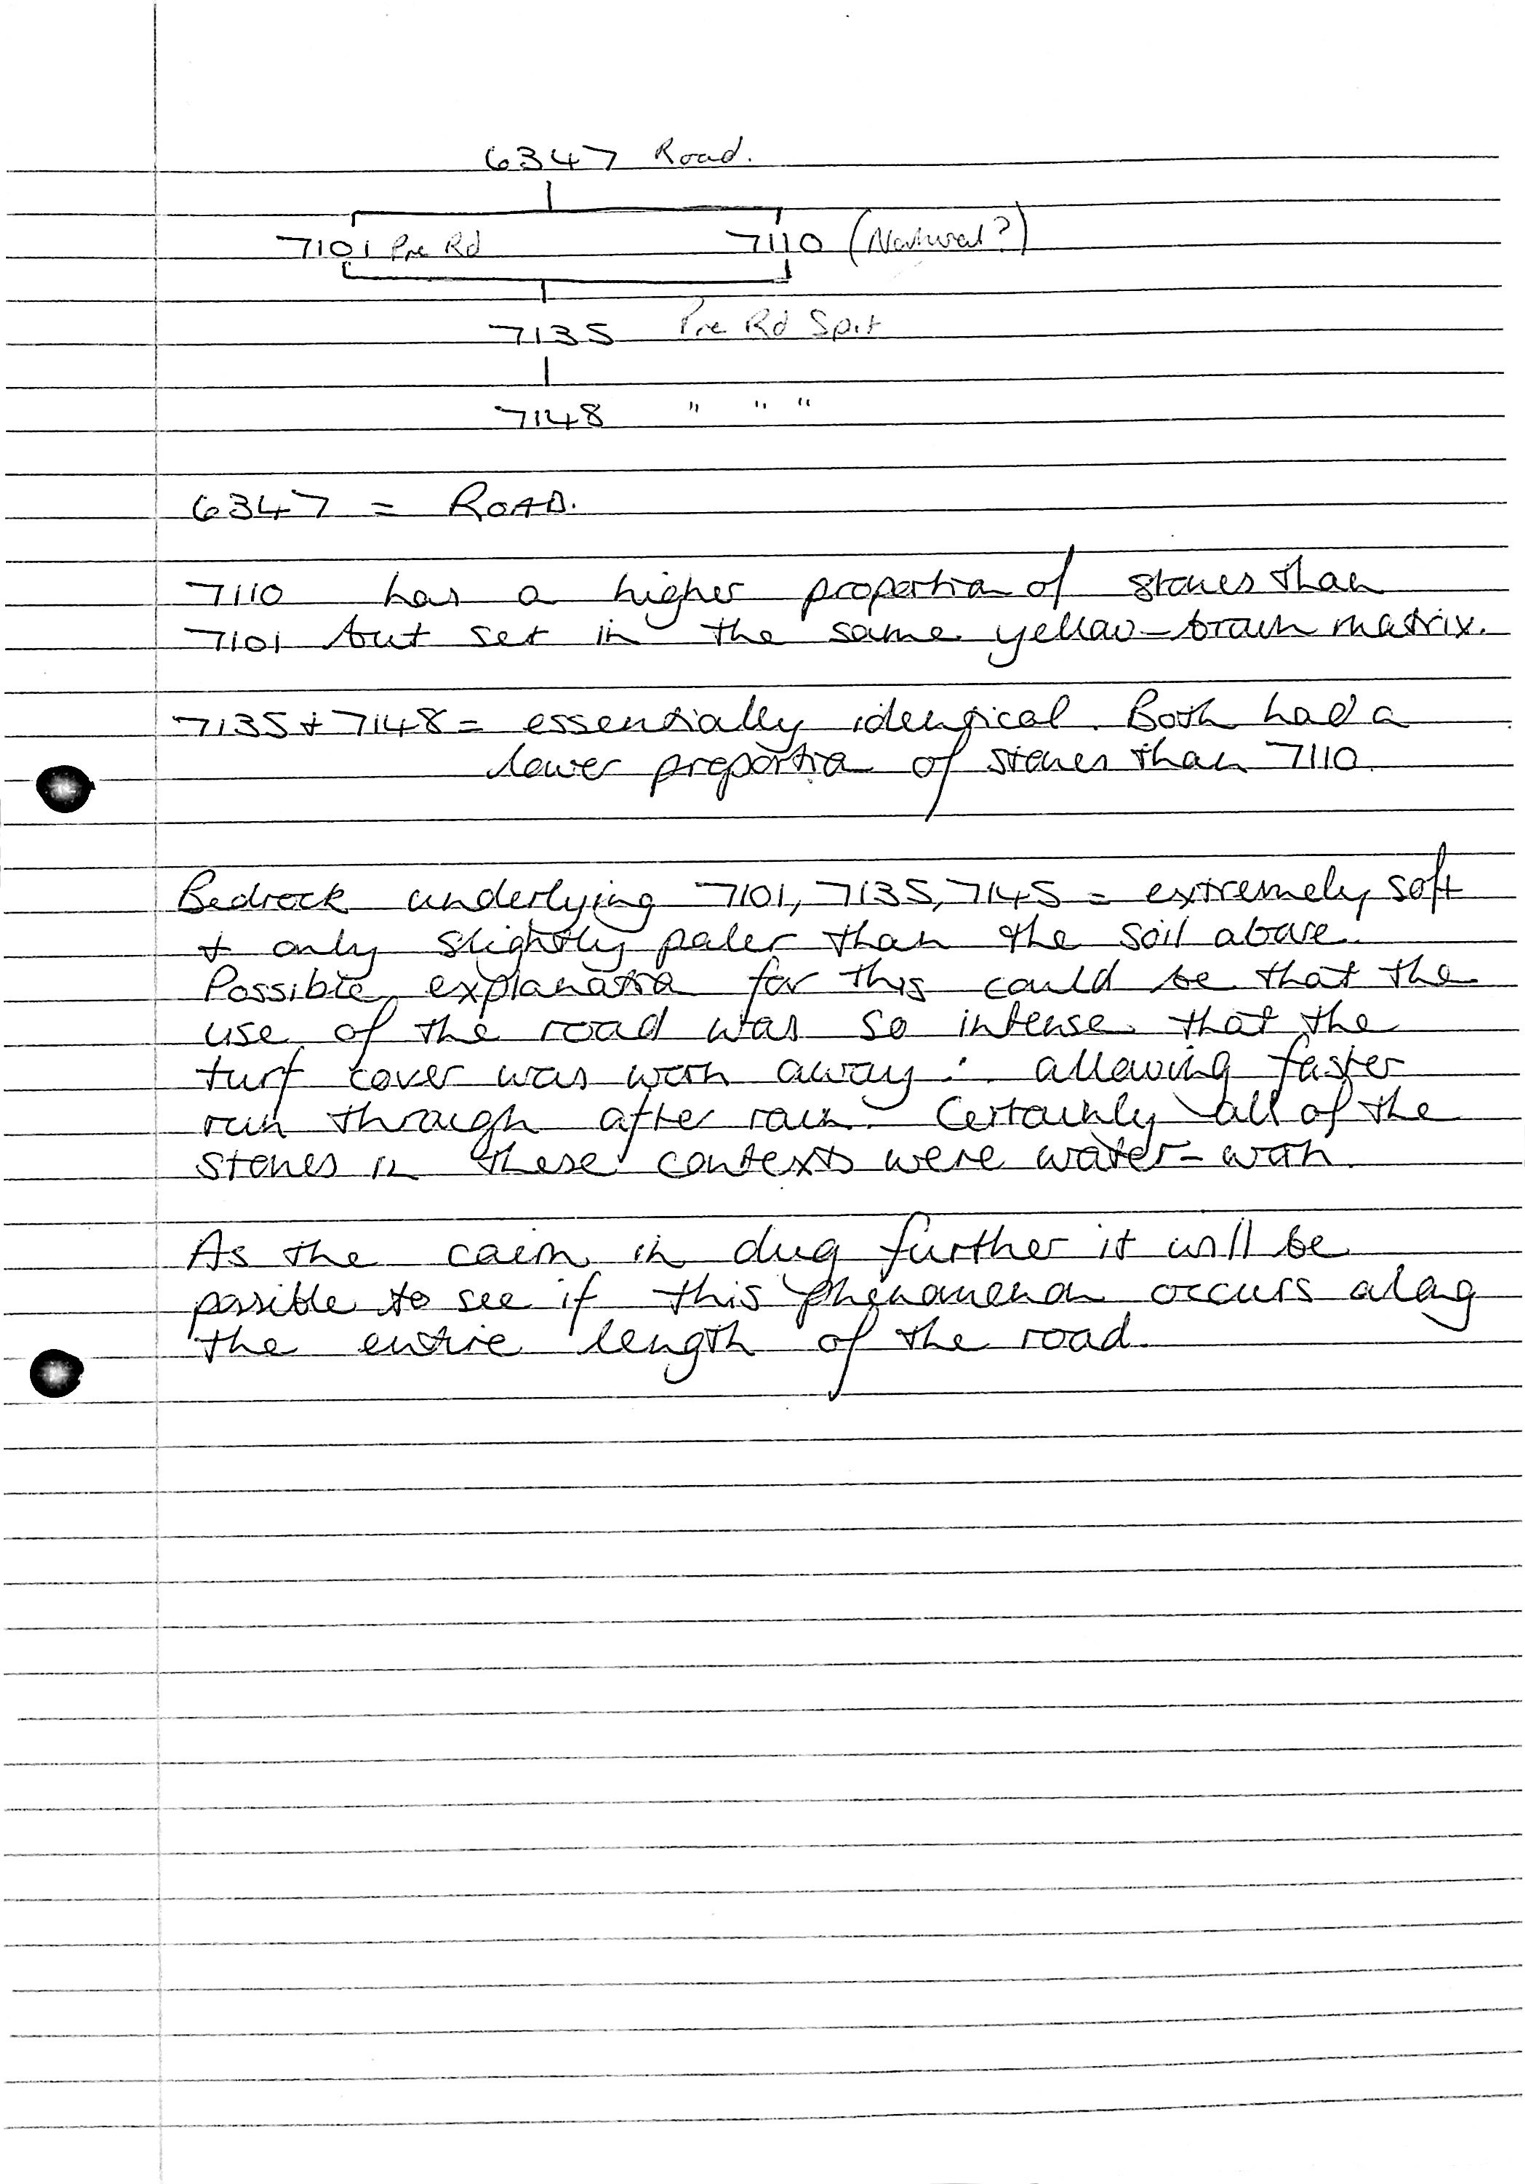 6347 Road.
7101 Pre Rd 7110 (Natural?)
7135 Pre Rd Spit
7148 " " "
6347 = ROAD.
7110 has a higher proportion of stones than
7101 but set in the same yellow-brown matrix.
7135 + 7148 = essentially identical. Both had a
lower proportion of stones than 7110.
Bedrock underlying 7101, 7135, 7145 = extremely soft
+ only slightly paler than the soil above.
Possible explanation for this could be that the
use of the road was so intense that the
turf cover was worn away ∴ allowing faster
run through after rain. Certainly all of the
stones in these contexts were water-worn.
As the cairn is dug further it will be
possible to see if this phenomenon occurs along
the entire length of the road.